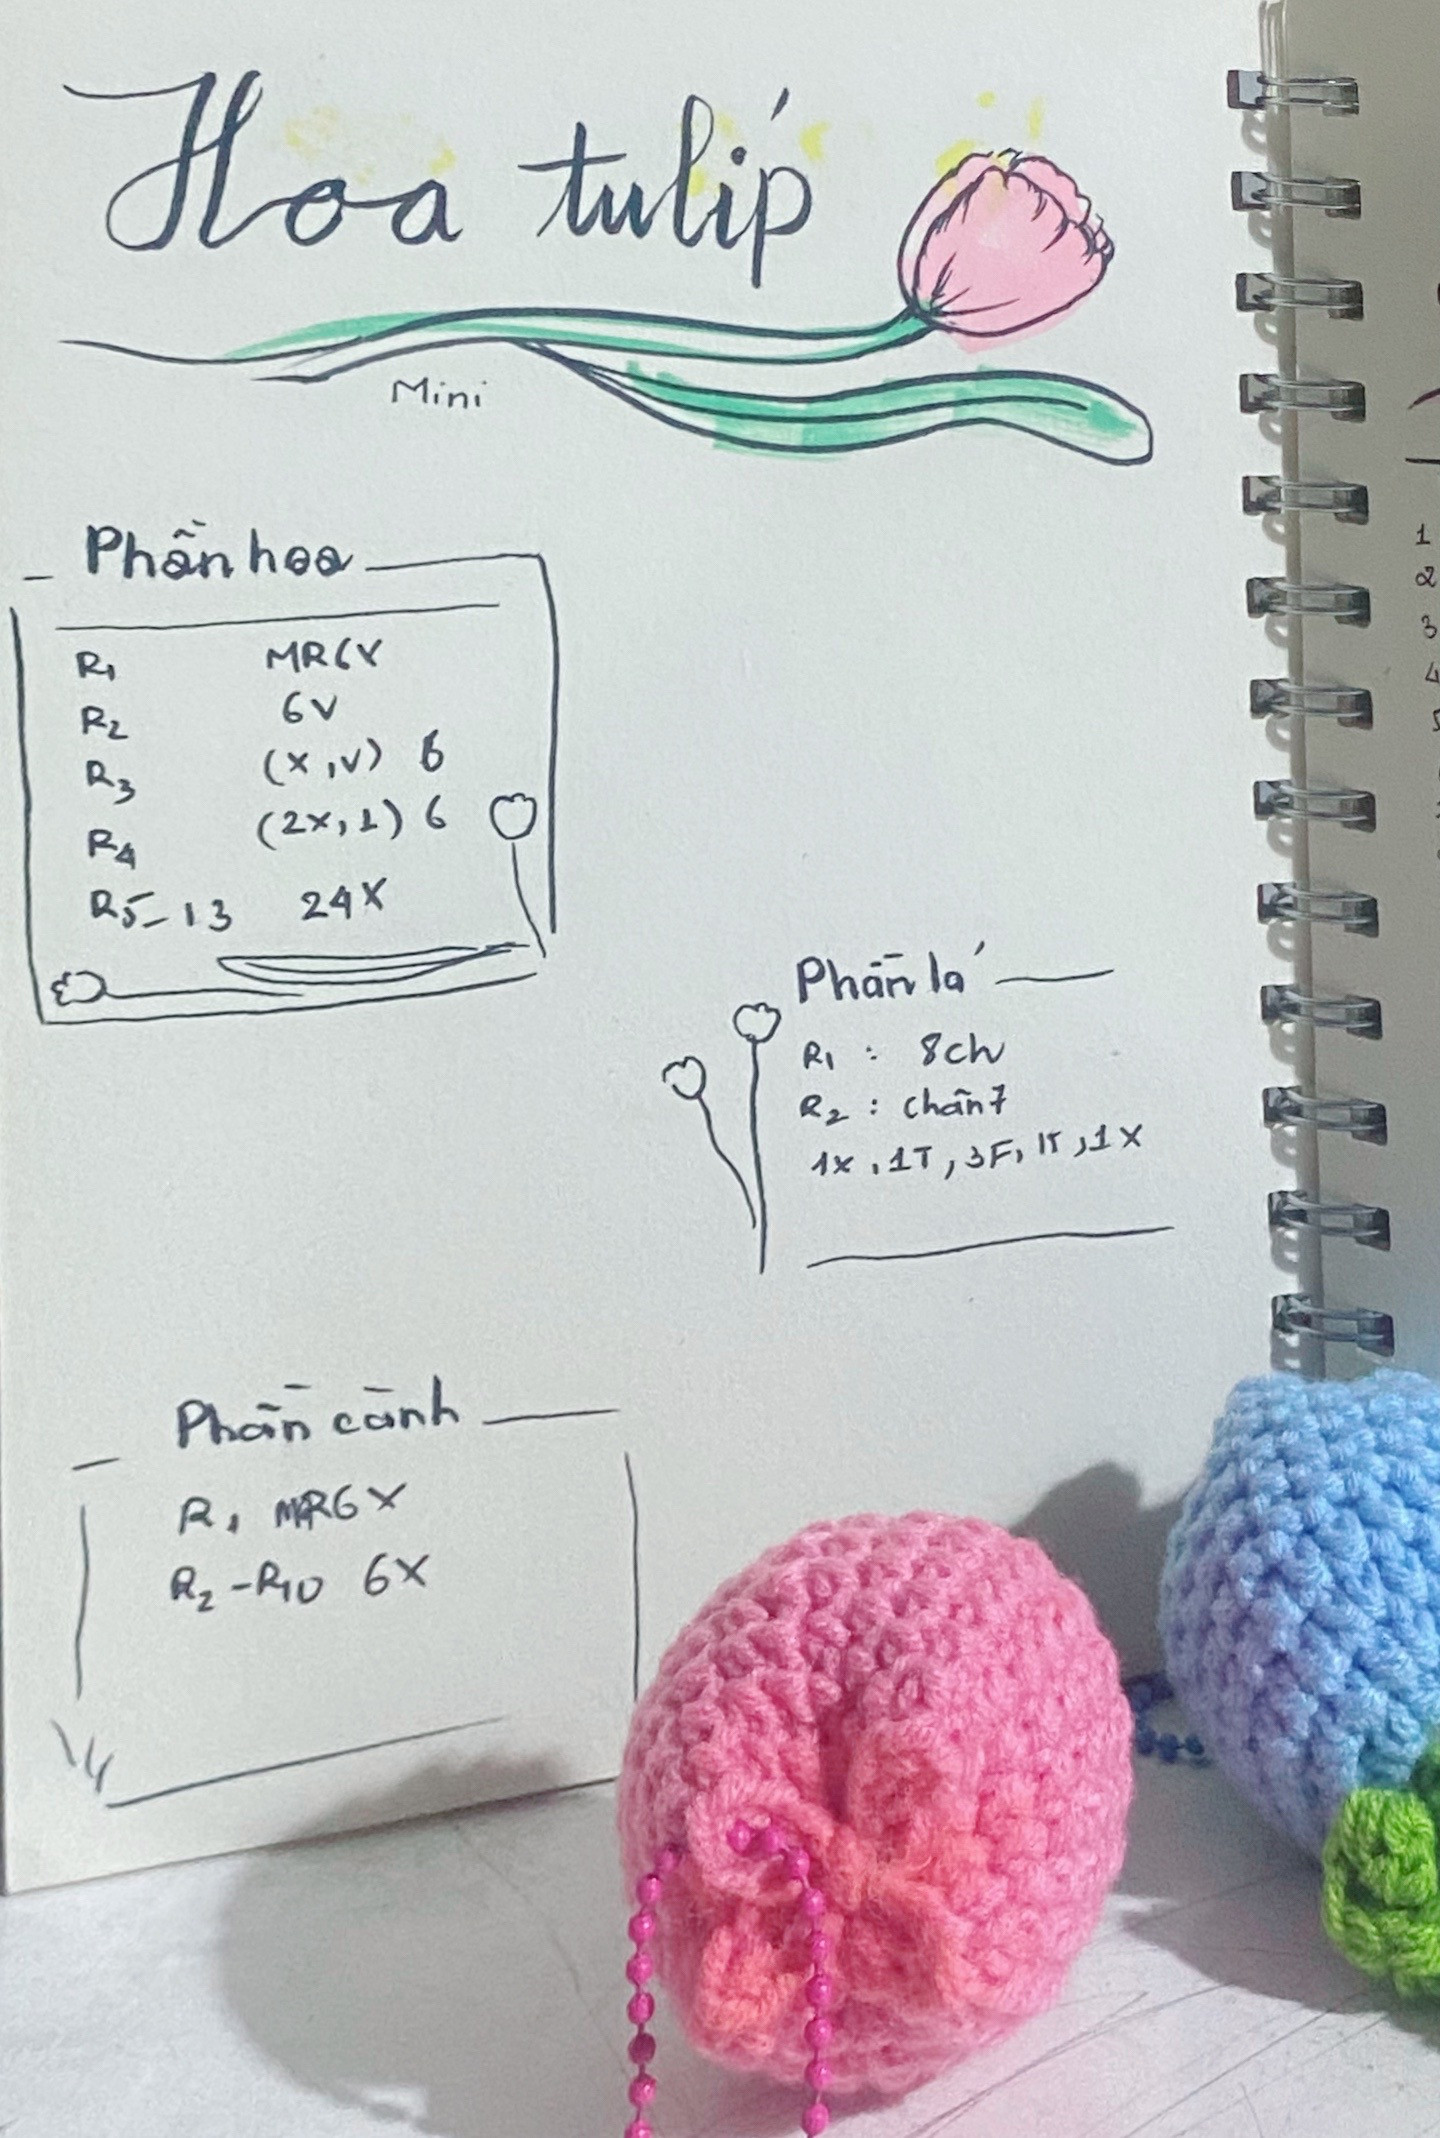 Hoa tulip
Mini
Phần hoa
R1 MR6X
R2 6V
R3 (x,v) 6
R4 (2x,1) 6
R5-13 24X
Phần lá
R1 : 8ch
R2 : chân7
1x, 1T, 3F, 1T, 1X
Phần cành
R1 MR6X
R2-R10 6X
1
2
3
4
5